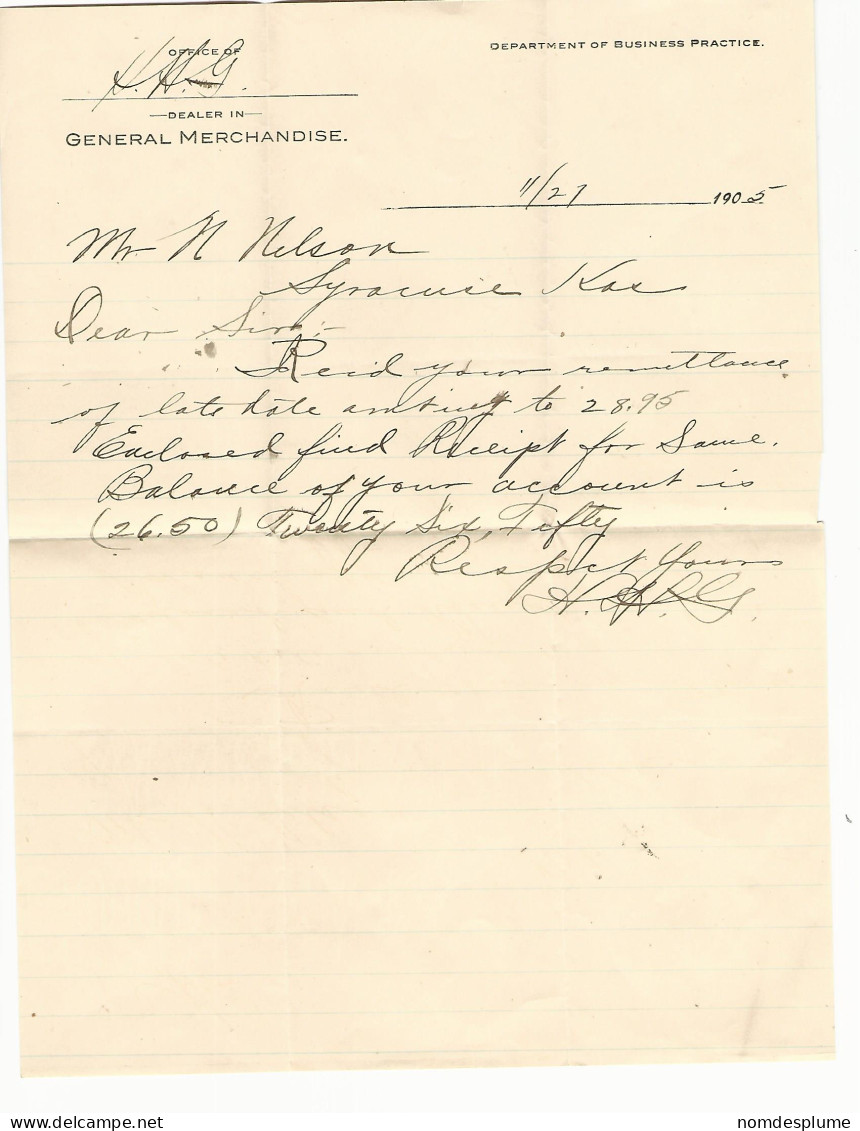 OFFICE OF
DEPARTMENT OF BUSINESS PRACTICE.
H. H. G.
—DEALER IN—
GENERAL MERCHANDISE.
11/27 1905
Mr N Nelson
Syracuse Kas
Dear Sir:-
Recd your remittance
of late date amting to 28.95
Enclosed find Receipt for Same.
Balance of your account is
(26.50) Twenty Six, Fifty
Respct Yours
H. H. G.
nomdesplume